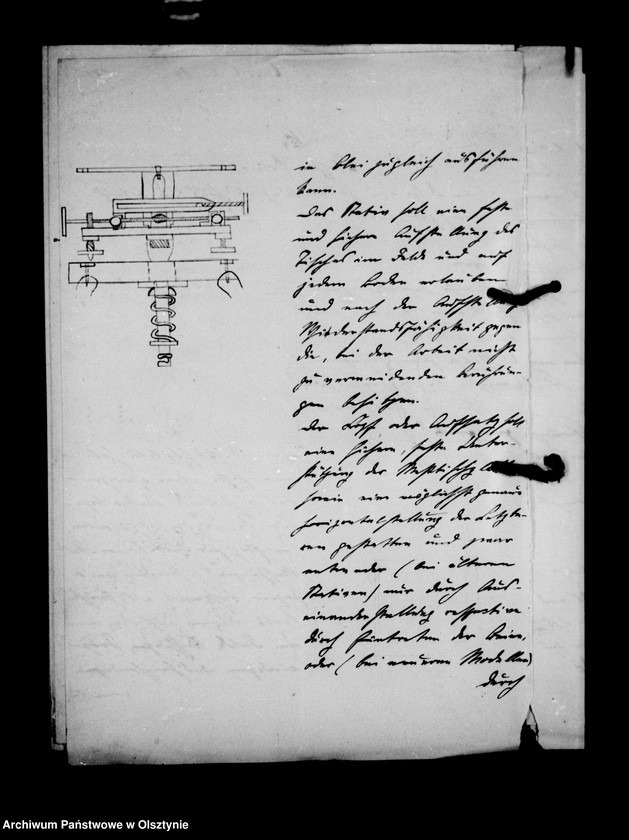 in Blei zugleich ausführen
kann.
Das Stativ soll eine feste
und sichere Aufstellung des
Tisches im Felde und auf
jedem Boden erlauben
und nach der Aufstellung
Widerstandsfähigkeit gegen
die, bei der Arbeit nicht
zu vermeidenden Berührun-
gen besitzen.
Der Kopf oder Aufsatz soll
eine sichere, feste Unter-
stützung der Meßtischplatte
sowie eine möglichst genaue
Horizontalstellung der Letzte-
ren gestatten und zwar
entweder (bei älteren
Stativen) nur durch Aus-
einanderstellung respective
durch Eintreten der Beine,
oder (bei neueren Modellen)
durch
Archiwum Państwowe w Olsztynie